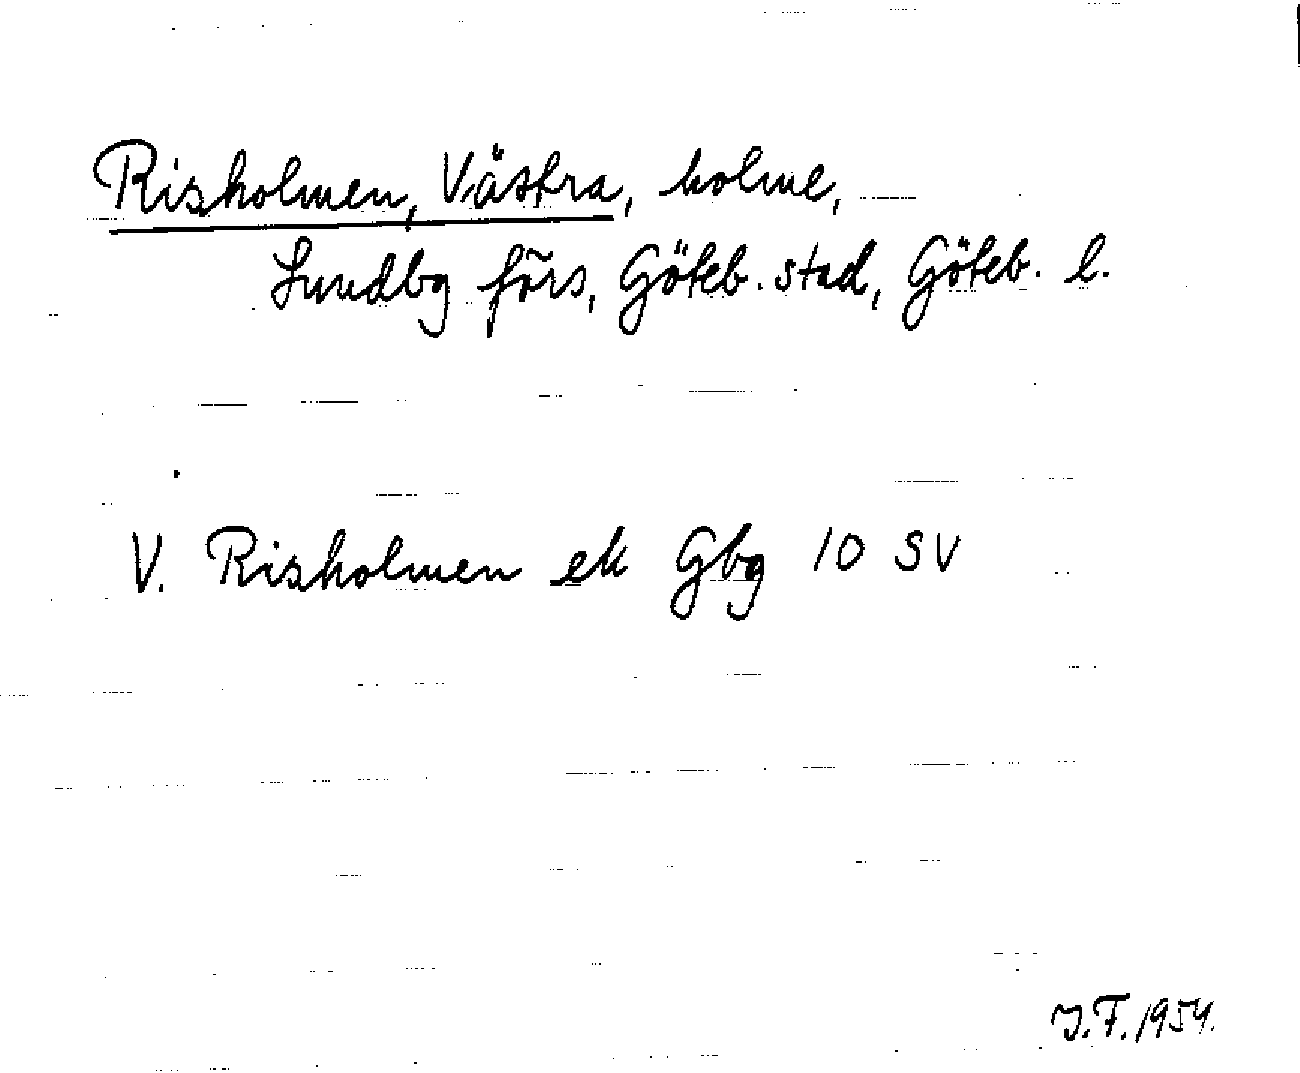 Risholmen, Västra, holme,
Lundby förs, Göteb. stad, Göteb. l.
V. Risholmen ek Gbg 10 SV
I.F. 1954.